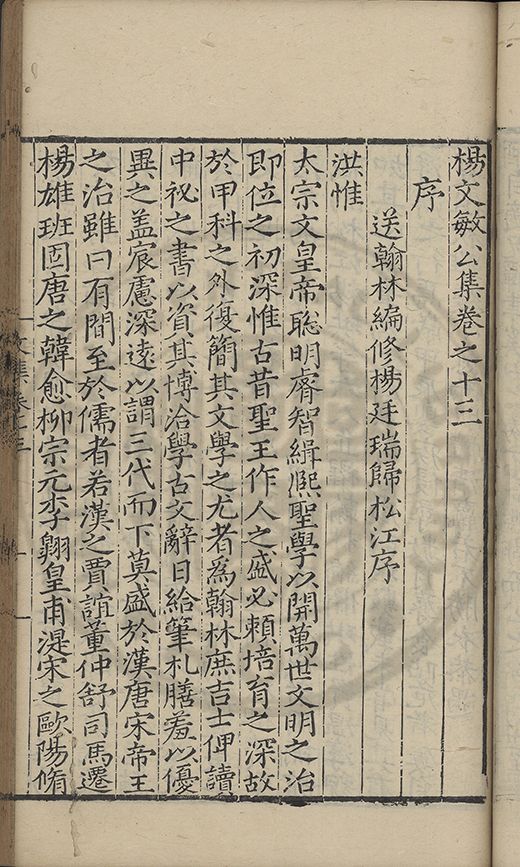 楊文敏公集卷之十三
序
送翰林編修楊廷瑞歸松江序
洪惟
太宗文皇帝聦明睿智緝熈聖學以開萬世文明之治
即位之初深惟古昔聖王作人之盛必頼培育之深故
於甲科之外優簡其文學之尤者為翰林庶吉士俾讀
中袐之書以資其博洽學古文辭日給筆札膳羞以優
異之盖宸慮深遠以謂三代而下莫盛於漢唐宋帝王
之治雖曰有間至於儒者若漢之賈誼董仲舒司馬遷
楊雄班固唐之韓愈柳宗元李翶皇甫湜宋之歐陽脩
文集卷十三